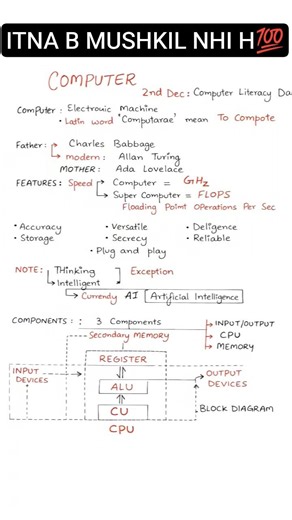 ITNA B MUSHKIL NHI H💯
COMPUTER
2nd Dec: Computer Literacy Da
Computer: Electrouic Machine
• Latin word 'Computarae' mean To Compote
Father: Charles Babbage
modern: Allan Turing
MOTHER: Ada Lovelace
FEATURES: Speed Computer = GHz
Super Computer = FLOPS
Floading Point Operations Per Sec
• Accuracy • Versatile • Deligence
• Storage • Secrecy • Reliable
• Plug and play
NOTE: Thinking Exception
Intelligent
Currendy AI Artificial Intelligence
COMPONENTS: : 3 Components INPUT/OUTPUT
Secondary MEMORY CPU
MEMORY
REGISTER
INPUT DEVICES
OUTPUT DEVICES
ALU
CU
BLOCK DIAGRAM
CPU